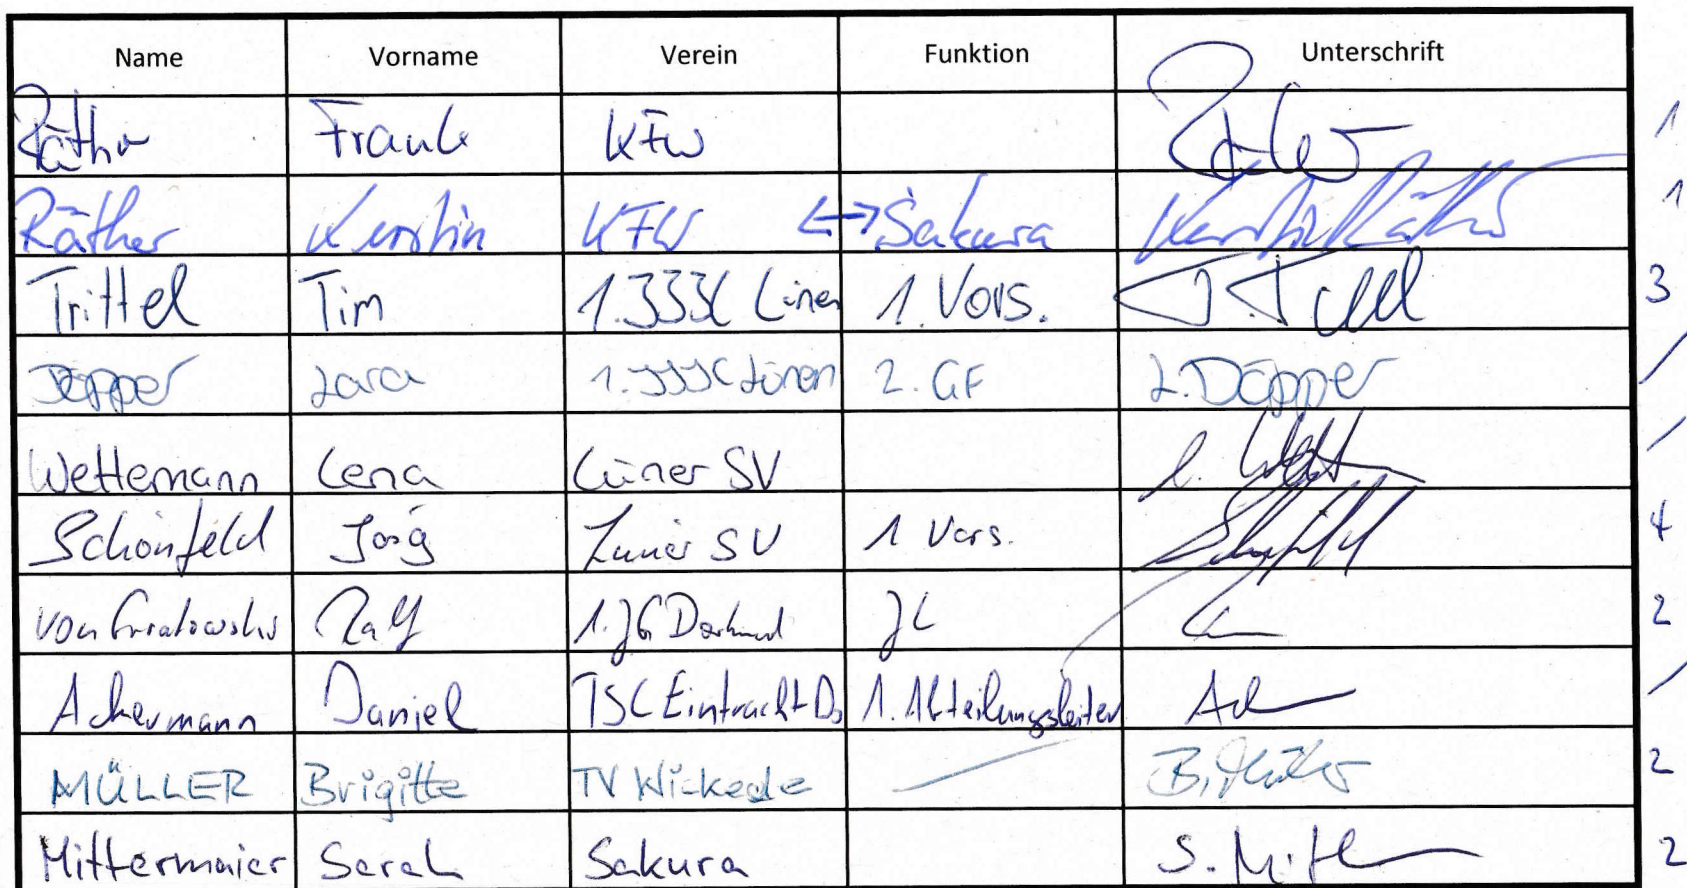 Name Vorname Verein Funktion Unterschrift
Räther Frank KFW 1
Räther Kerstin KFW <-> Sakura Kerstin Räther 1
Trittel Tim 1. JJJC Lünen 1. Vors. T. Trittel 3
Döpper Lara 1. JJJC Lünen 2. GF L. Döpper /
Wettemann Lena Lüner SV /
Schönfeld Jörg Lüner SV 1 Vors. 4
von Ralf 1. JG Dortmund JL 2
Ackermann Daniel TSC Eintracht Do 1. Abteilungsleiter /
MÜLLER Brigitte TV Wickede — B. Müller 2
Mittermaier Sarah Sakura 2